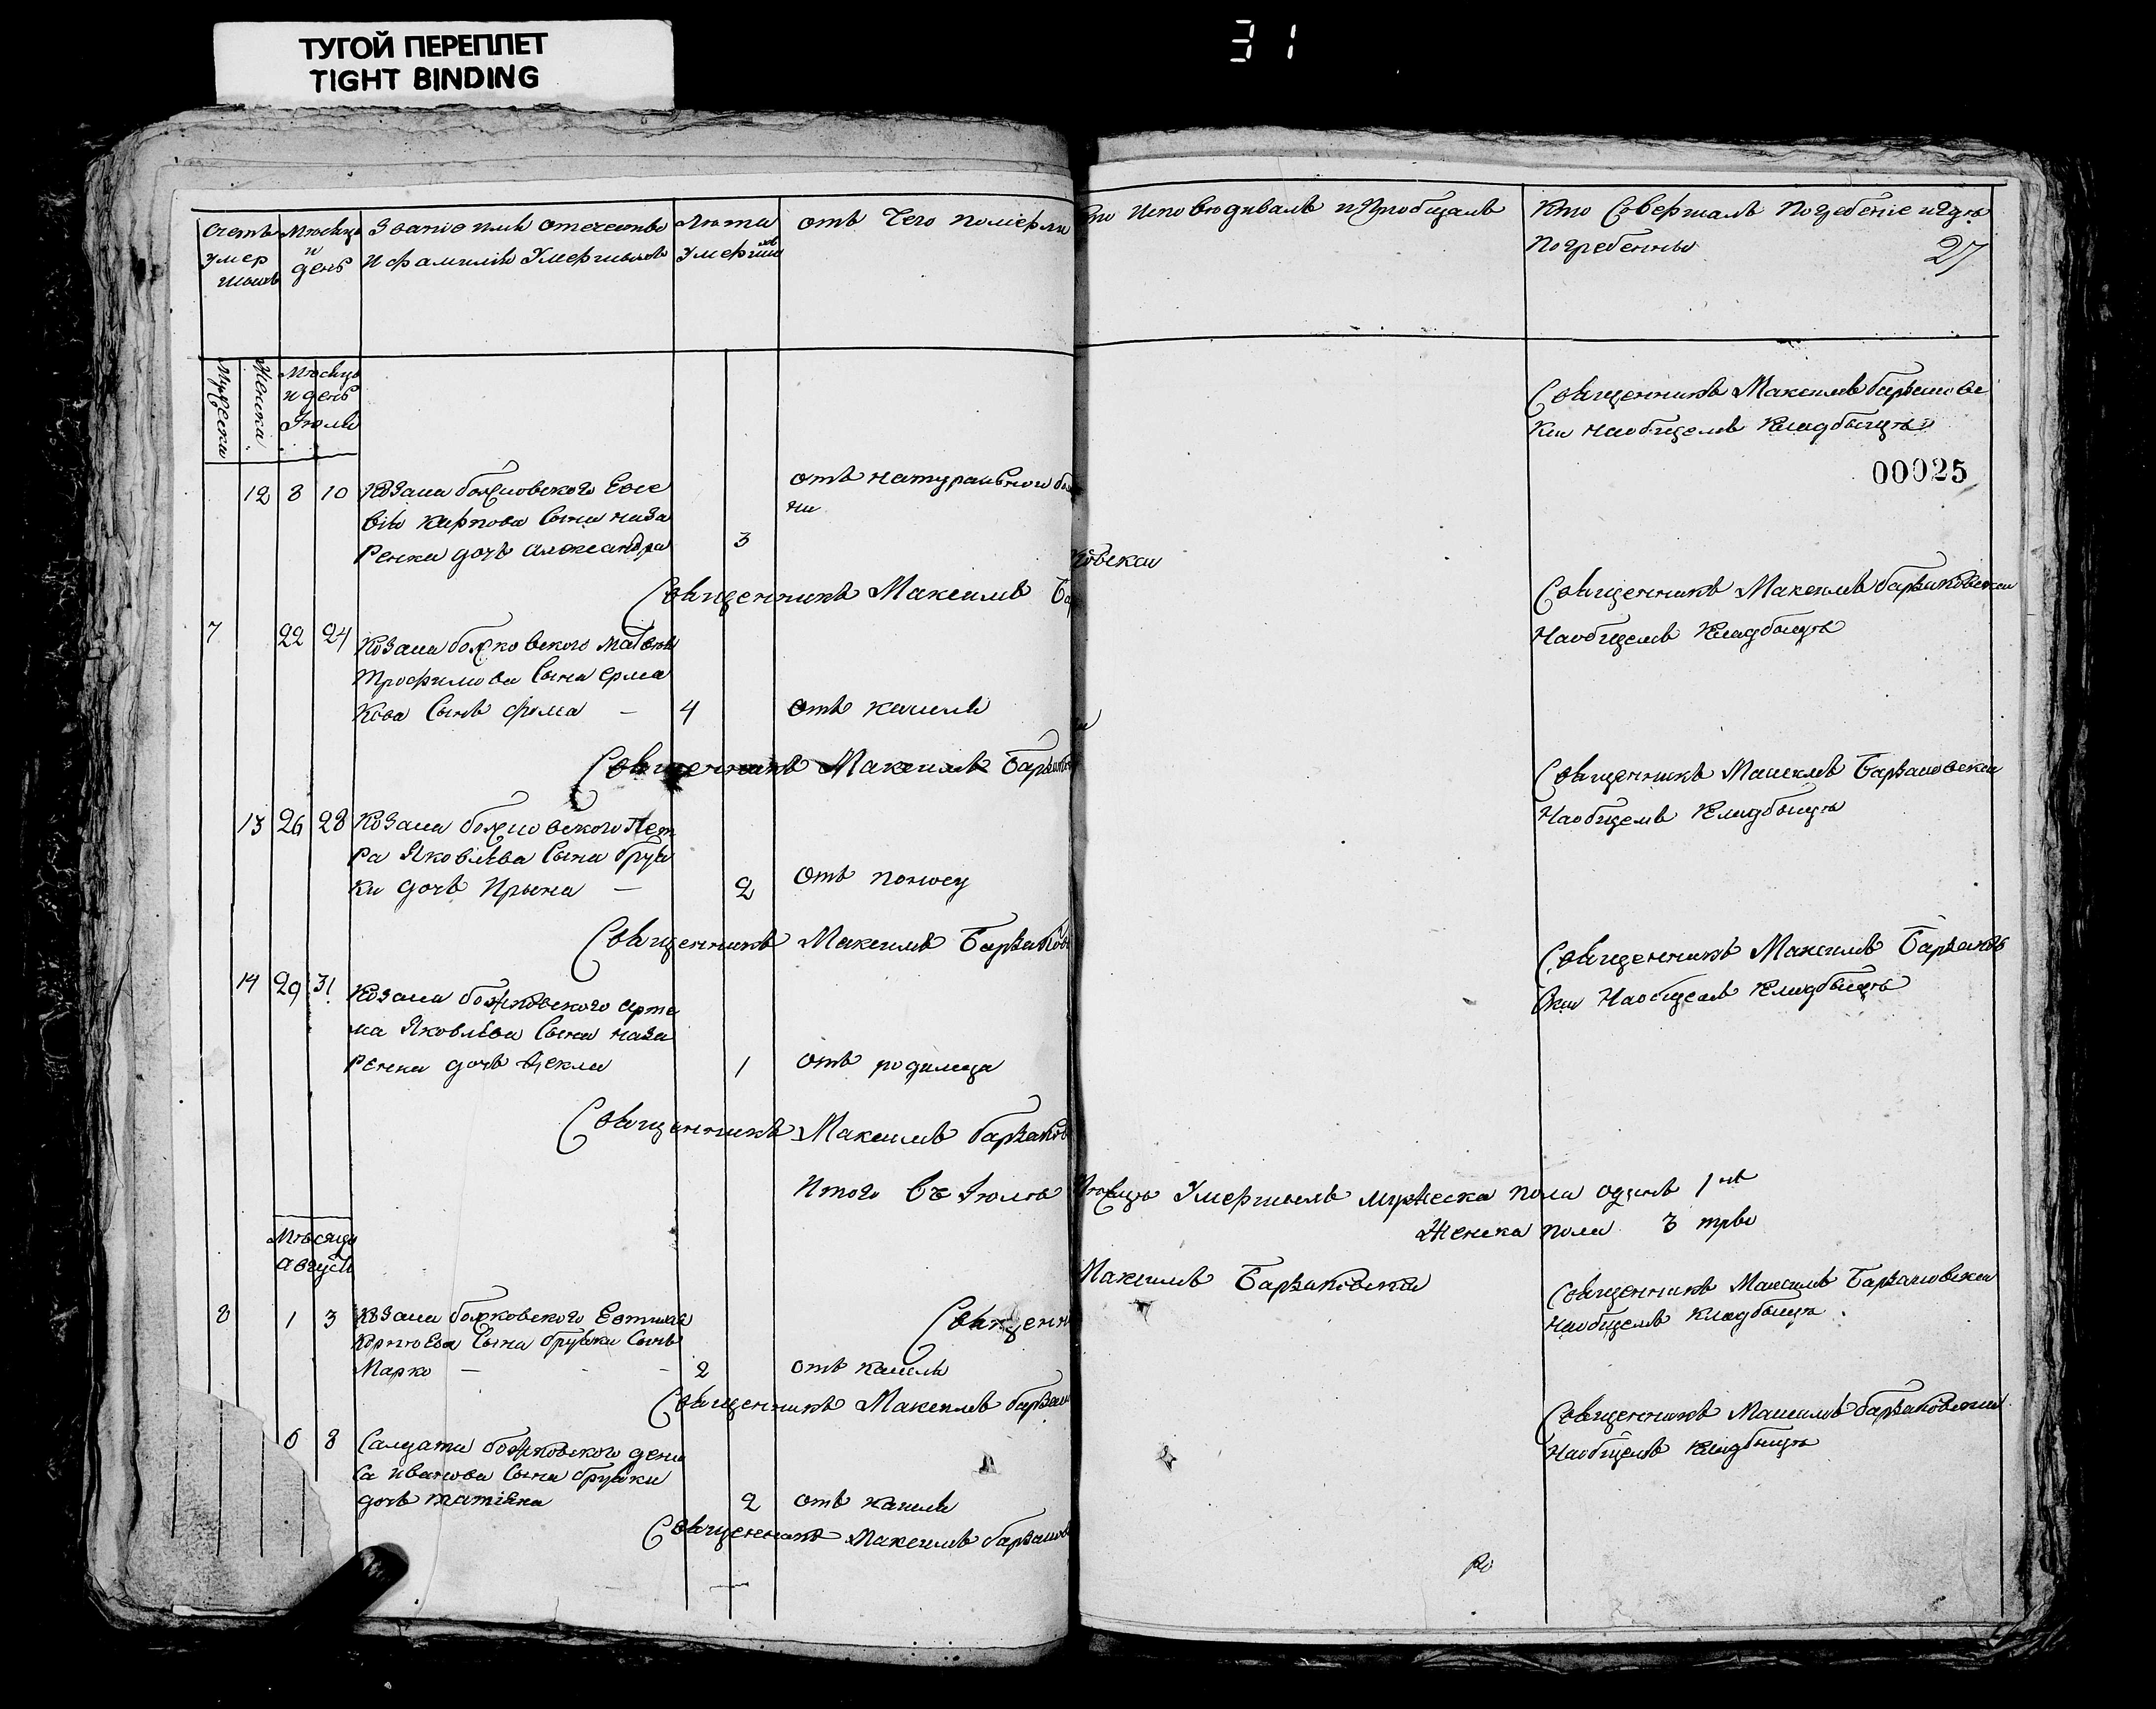 ТУГОЙ ПЕРЕПЛЕТ
TIGHT BINDING
31
Счетъ умер шихъ
Мѣсяцъ и день
Званіе имя отечество и фамилія Умершихъ
Лѣта Умершихъ
отъ Чего померли
Кто Исповѣдывалъ и Приобщалъ
Кто Совершалъ Погребеніе и Гдѣ
Погребенны
27
Мужеска
Женска
Мѣсяцъ
и день
Іюля
Священникъ Максимъ Барзаковс
кій На общемъ Кладбыщѣ
00025
12 8 10 Козака божковского Евсе
вія Карпова Сына наза
Ренка дочъ александра
3
отъ натуральной бо
ни
Священникъ Максимъ Бар
ковский
Священникъ Максимъ барзаковский
На общемъ Кладбыщѣ
7 22 24 Козака божковского матвея
трофимова Сына ерма
Кова Сынъ фома — 4 отъ кашля
Священникъ Максимъ Барзаков
Священникъ Максимъ Барзаковский
На общемъ Кладбыщѣ
13 26 28 Козака божковского Пет
Ра Яковлѣва Сына
ки дочъ Ирына — 2 отъ поносу
Священникъ Максимъ Барзаков
Священникъ Максимъ Барзаков
ский На общемъ Кладбыщѣ
14 29 31 Козака божковского арте
ма Яковлѣва Сына наза
Ренка дочъ Фекла 1 отъ родимца
Священникъ Максимъ барзаков
Итого Въ Іюлѣ Мѣсяцѣ Умершихъ мужеска пола одинъ 1
Женска пола 3 три
Мѣсяца
августа
Священн
Максимъ Барзаковский
8 1 3 Козака божковского Евтиха
Корнѣева Сына Сынъ
Марко — - - 2 отъ кашля
Священникъ Максимъ барзак
Священникъ Максимъ Барзаковский
На общемъ Кладбыщѣ
6 8 Салдата божковского дени
са иванова Сына
дочъ татіяна 2 отъ кашля
Священникъ Максимъ барзаков
Священникъ Максимъ барзаковский
На общемъ Кладбыщѣ